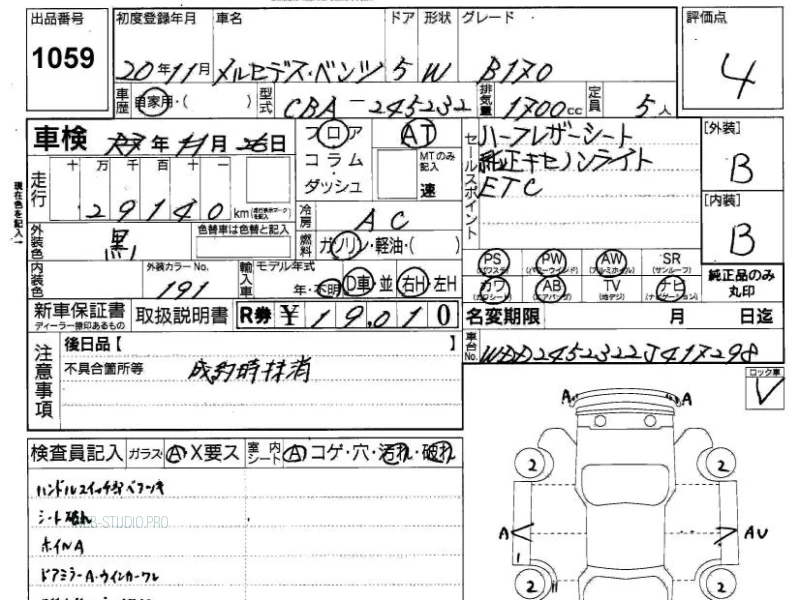 出品番号 初度登録年月 車名 ドア 形状 グレード 評価点
1059 20年11月 メルセデス・ベンツ 5 W B170 4
車歴 自家用・( ) 型式 CBA-245232 排気量 1700cc 定員 5人
車検 年 月 日 フロア AT セールスポイント ハーフレザーシート [外装]
コラム MTのみ記入 純正キセノンライト B
走行 十 万 千 百 十 一 ダッシュ 速 ETC
29140 km [内装]
現在色を記入 冷房 AC B
外装色 黒 色替車は色替と記入 燃料 ガソリン・軽油・( )
PS PW AW SR
(パワステ) (パワーウインド) (アルミホイル) (サンルーフ)
内装色 外装カラーNo. 191 輸入車 モデル年式 年・不明 D車・並 右H・左H
カワ AB TV ナビ 純正品のみ丸印
(カワシート) (エアバッグ) (地デジ) (ナビゲーション)
新車保証書 取扱説明書 R券 ¥19,010 名変期限 月 日迄
ディーラー捺印あるもの
車台No. WDD2452322J417298
注意事項 後日品【 】
不具合箇所等 成約時抹消
ロック車
検査員記入 ガラス・A・X要ス 室内シート A コゲ・穴・汚れ・破れ
ハンドルスイッチ部ベタツキ
シート破れ
WEB-STUDIO.PRO
ホイルA
ドアミラーA・ウインカーワレ
A A
2 2
A AU
2 2